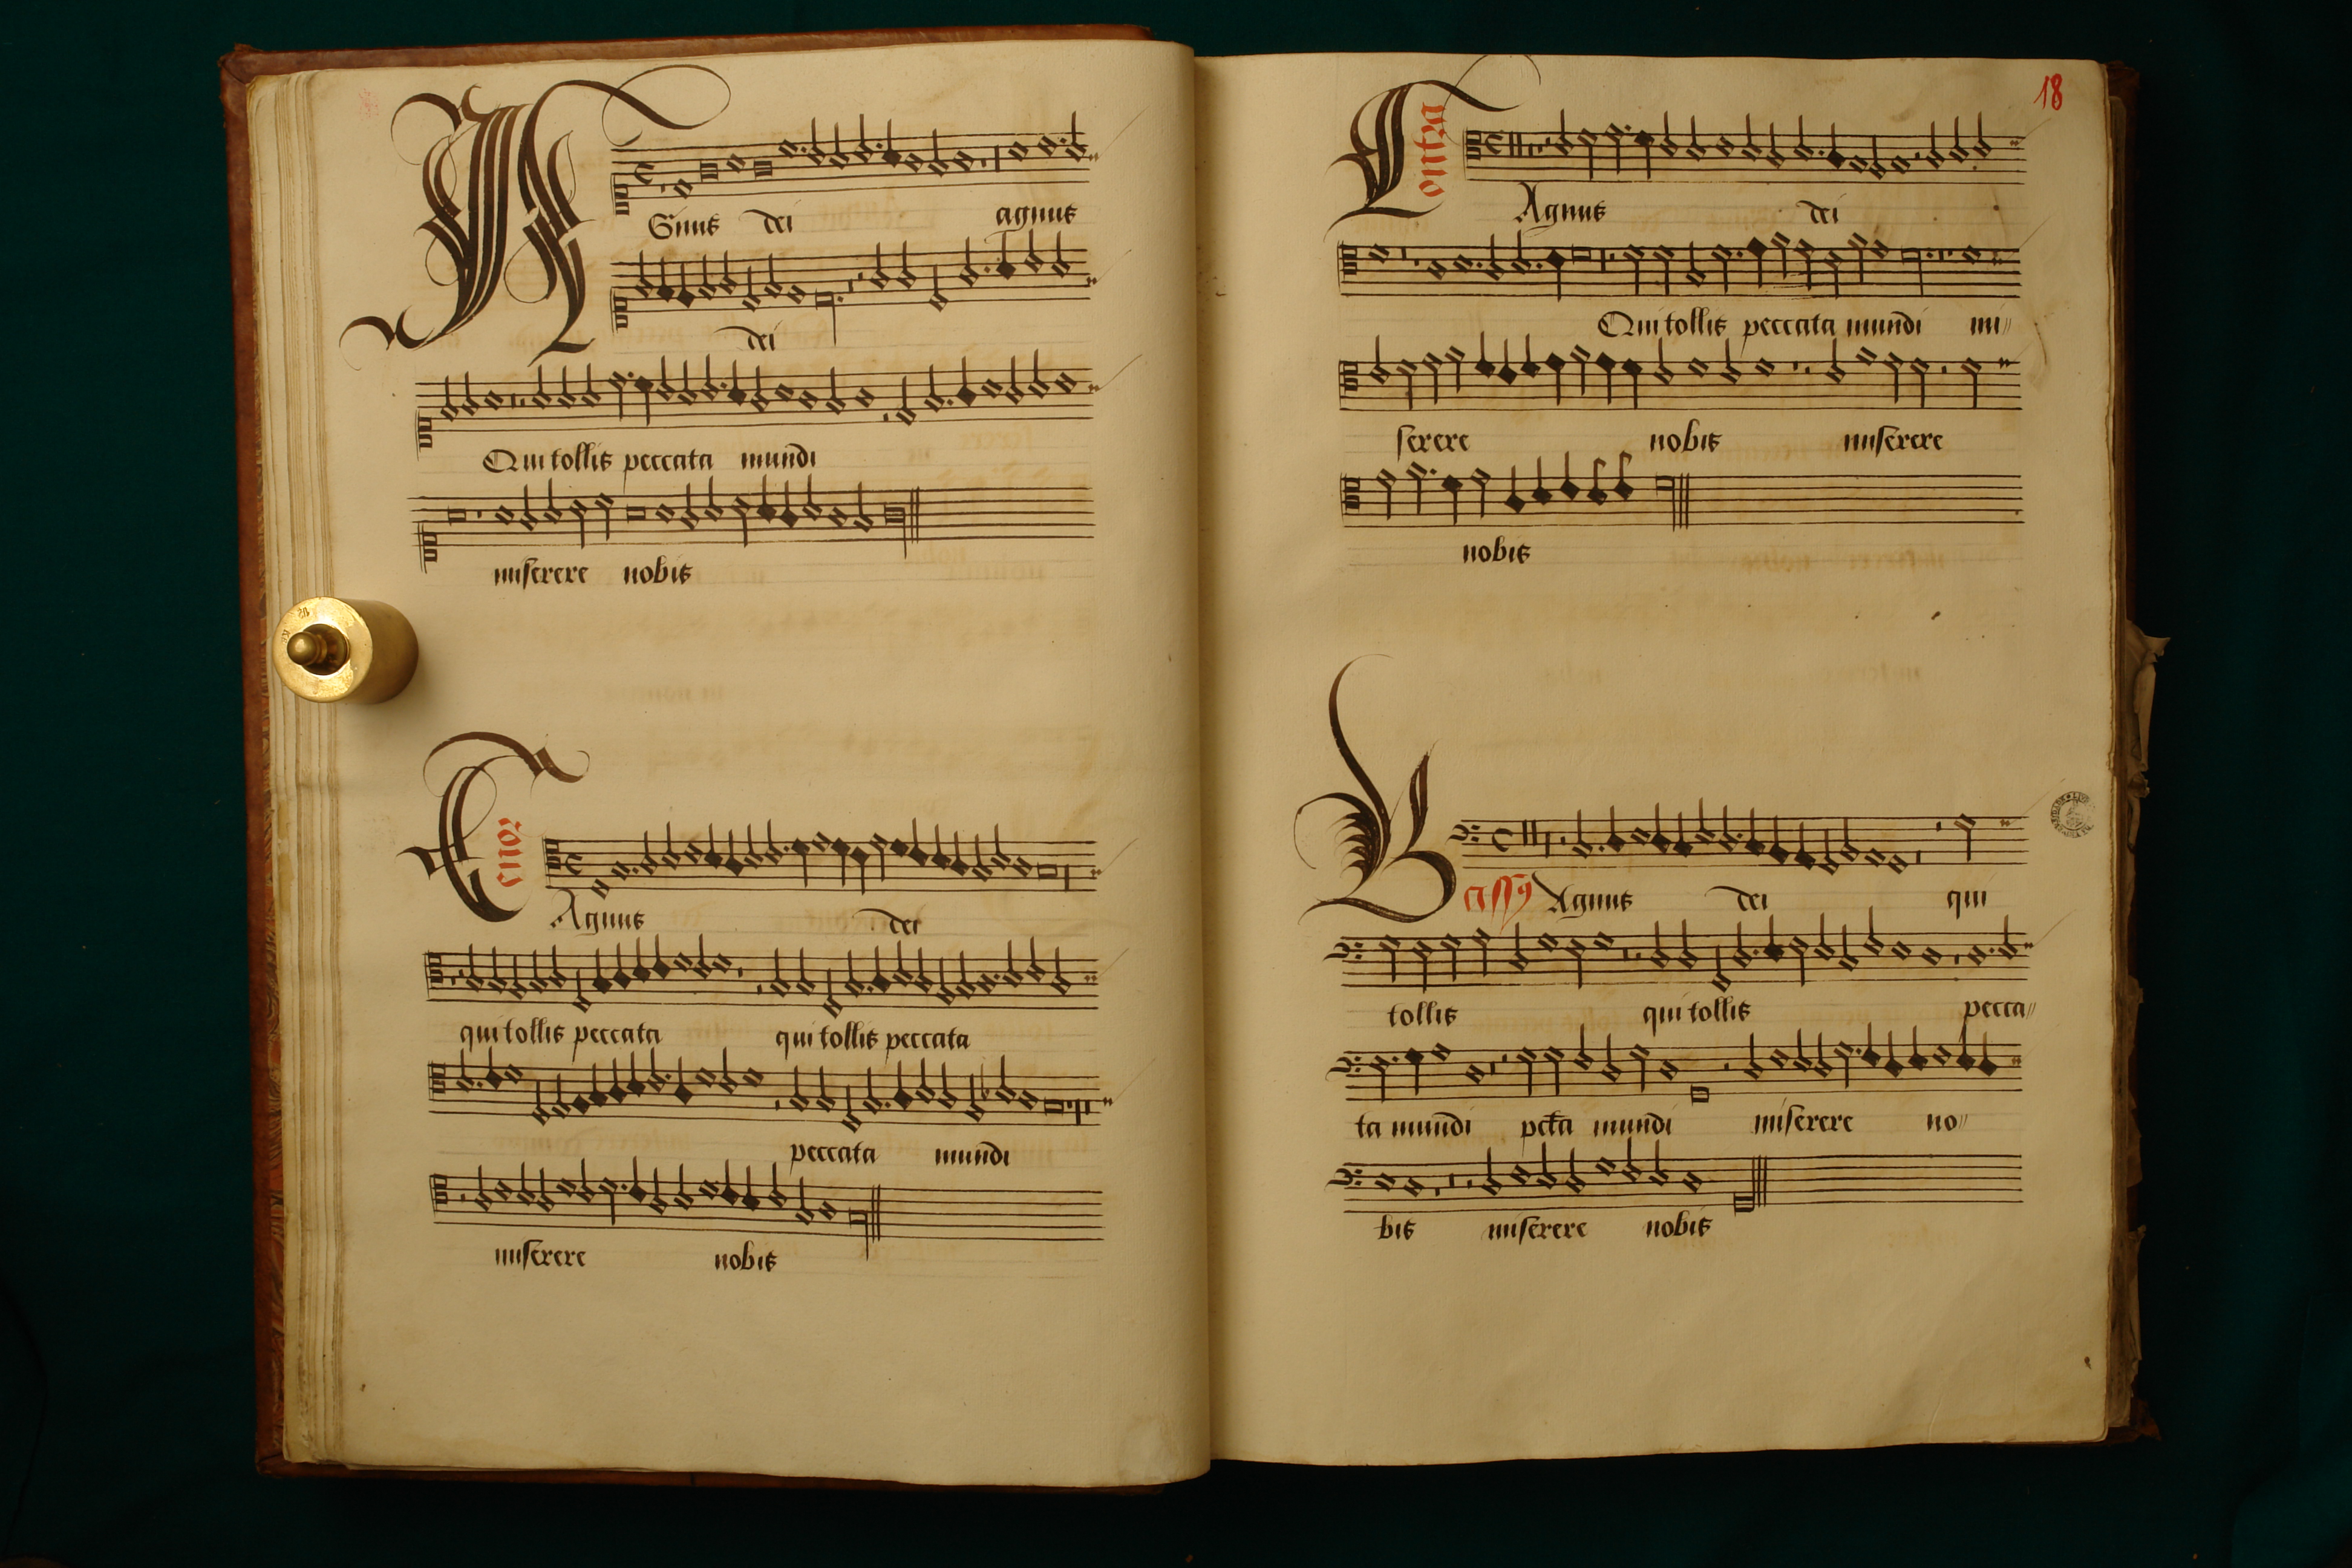 Agnus dei agnus
dei
Qui tollis peccata mundi
miserere nobis
Tenor
Agnus dei
qui tollis peccata qui tollis peccata
peccata mundi
miserere nobis
18
Contra
Agnus dei
Qui tollis peccata mundi mi〃
serere nobis miserere
nobis
Bassꝯ Agnus dei qui
tollis qui tollis pecca〃
ta mundi pctā mundi miserere no〃
bis miserere nobis